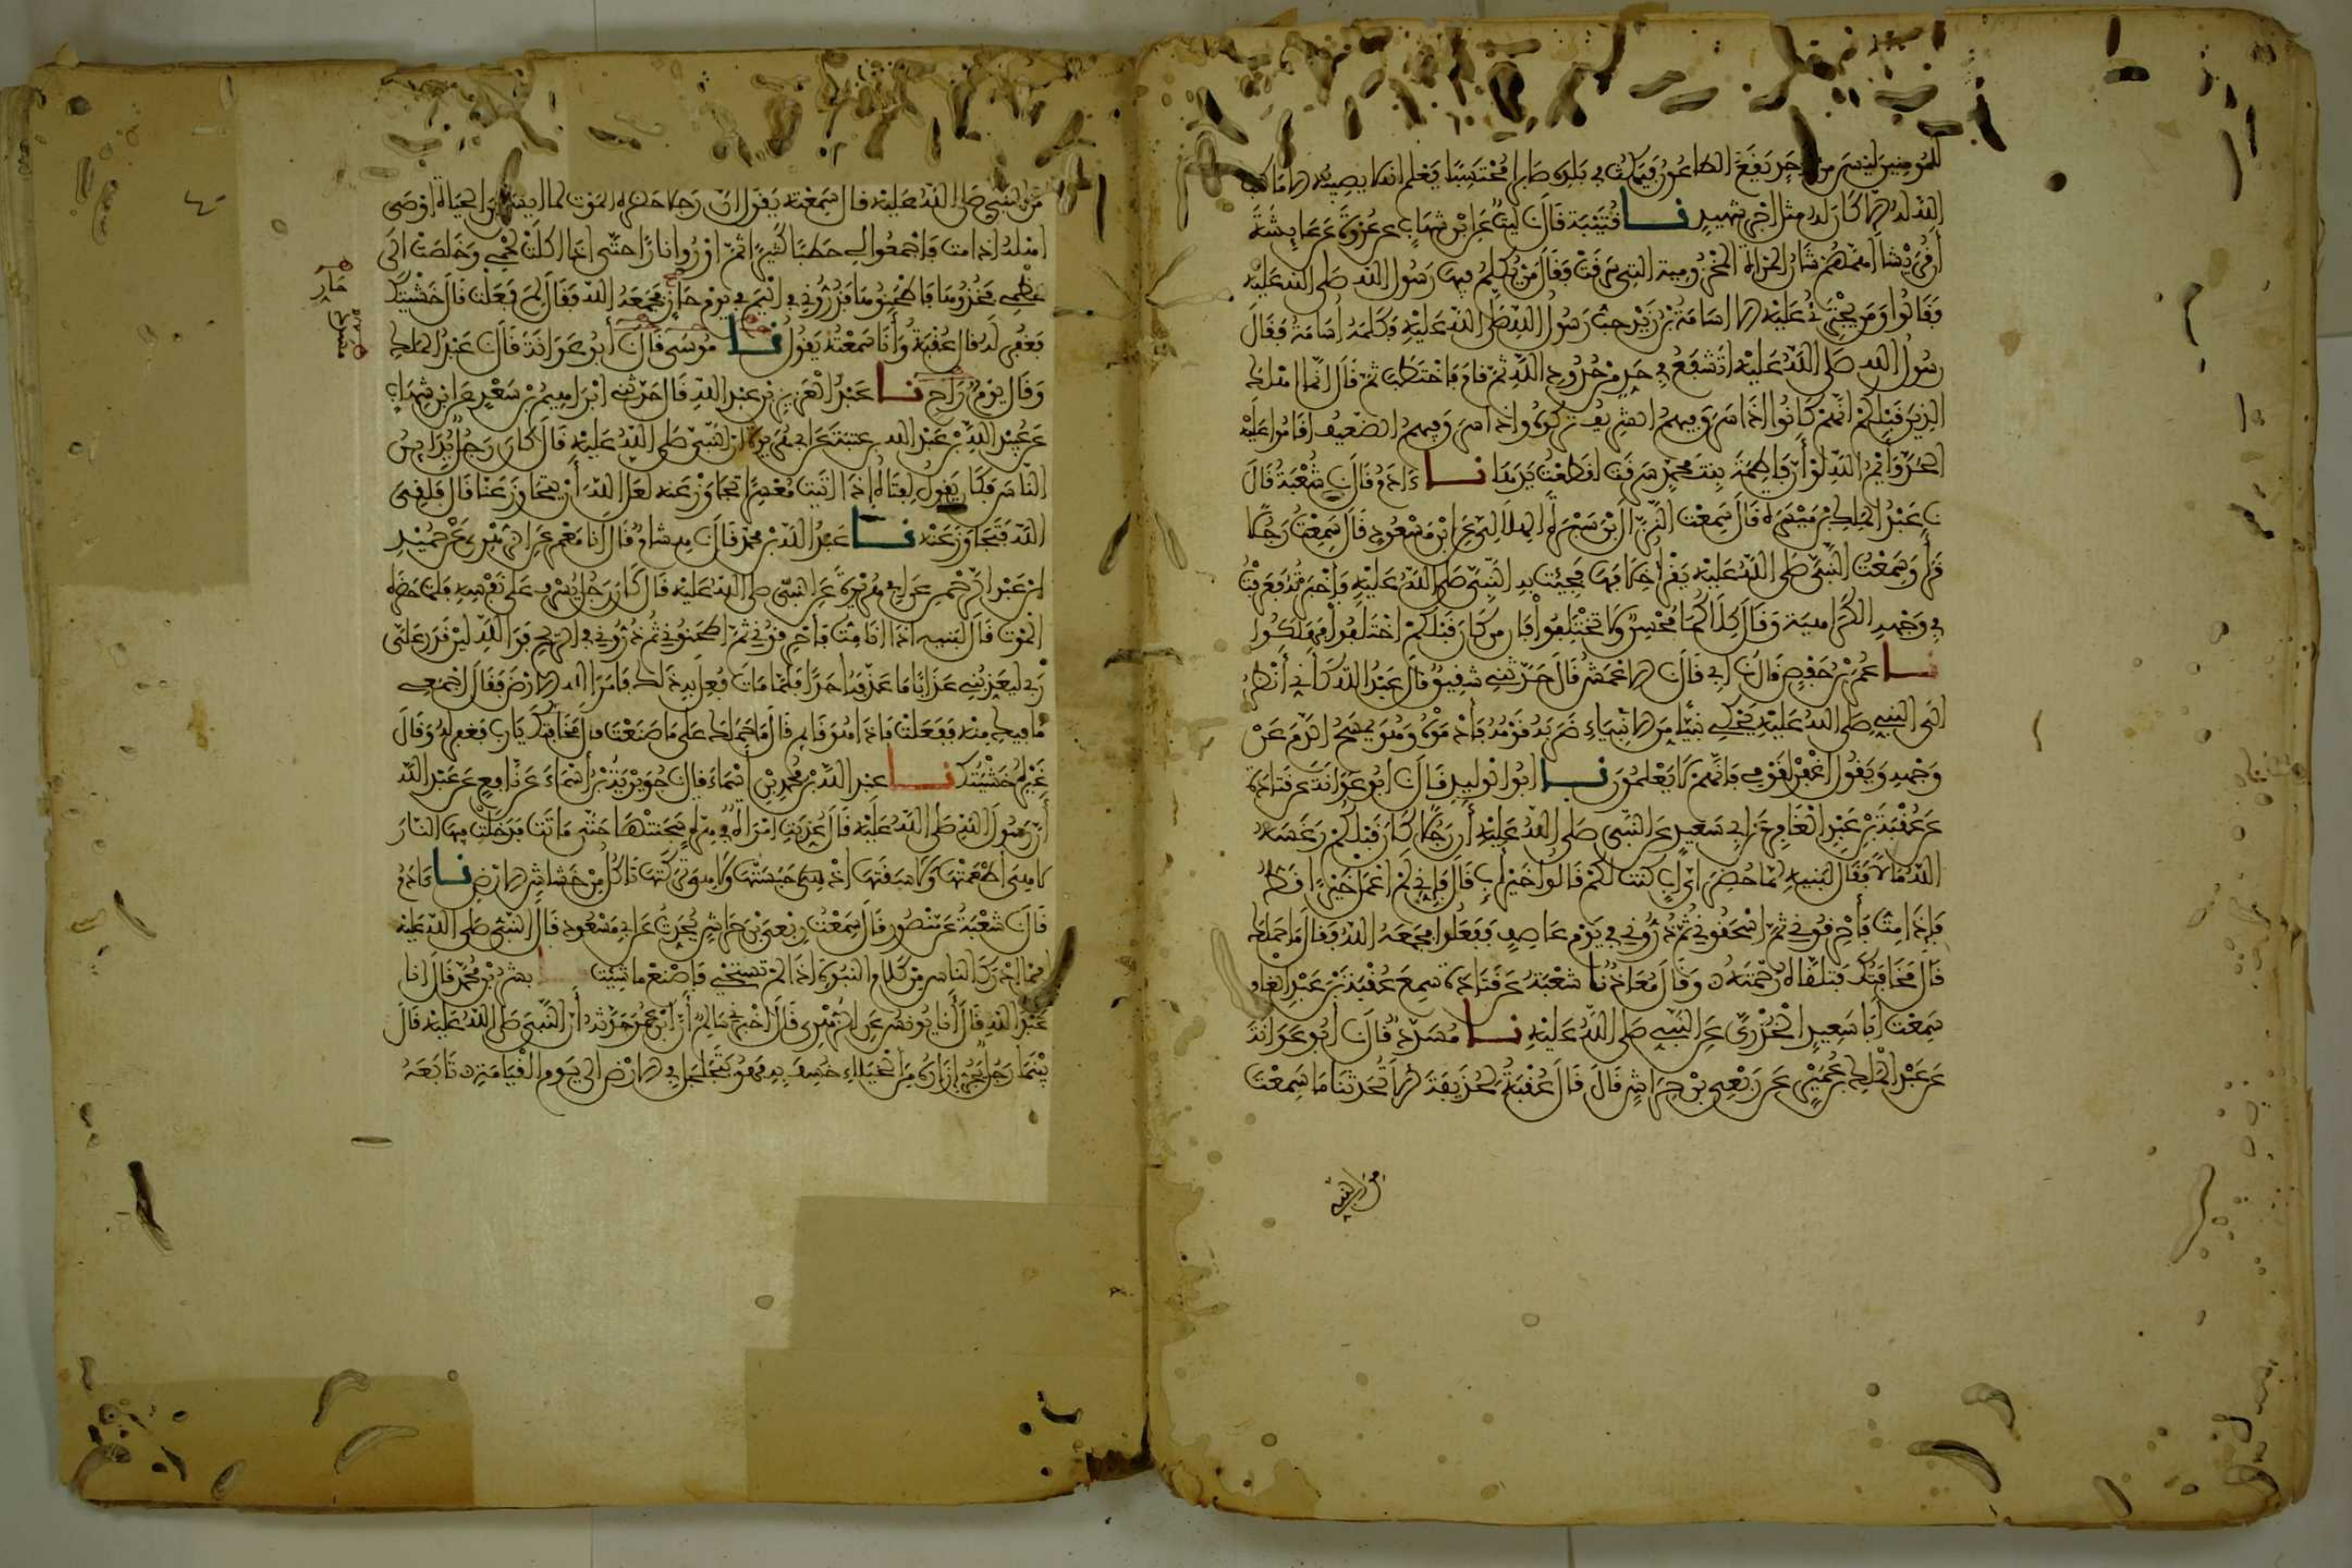 للمومنين ليس من احد يقع الطاعون فيمكث في بلده صابرا محتسبا يعلم انه لا يصيبه الا ما كتب
الله له الا كان له مثل اجر شهيد نا قتيبة قال نا ليث عن ابن شهاب عن عروة عن عايشة
أن قريشا أهمهم شان المرأة المخزومية التي سرقت فقال من يكلم فيها رسول الله صلى الله عليه
فقالوا ومن يجترئ عليه الا اسامة بن زيد حب رسول الله صلى الله عليه فكلمه أسامة فقال
رسول الله صلى الله عليه اتشفع في حد من حدود الله ثم قام فاختطب ثم قال انما اهلك
الذين قبلكم انهم كانوا اذا سرق فيهم الشريف تركوه واذا سرق فيهم الضعيف اقاموا عليه
الحد وأيم الله لو أن فاطمة بنت محمد سرقت لقطعت يدها نا ءادم قال نا شعبة قال
نا عبد الملك بن ميسرة قال سمعت النزال بن سبرة الهلالي عن ابن مسعود قال سمعت رجلا
قرأ وسمعت النبي صلى الله عليه يقرأ خلافها فجئت به النبي صلى الله عليه فاخبرته فعرفت
في وجهه الكراهية وقال كلاكما محسن ولا تختلفوا فان من كان قبلكم اختلفوا فهلكوا
نا عمر بن حفص قال نا ابي قال نا الاعمش قال حدثني شقيق قال عبد الله كأني أنظر
الى النبي صلى الله عليه يحكي نبيا من الانبياء ضربه قومه فأدموه وهو يمسح الدم عن
وجهه ويقول اغفر لقومي فانهم لا يعلمون نا ابو الوليد قال نا ابو عوانة عن قتادة
عن عقبة بن عبد الغافر عن ابي سعيد عن النبي صلى الله عليه أن رجلا كان قبلكم رغسه
الله مالا فقال لبنيه لما حضر اي اب كنت لكم قالوا خير أب قال فإني لم اعمل خيرا قط
فإذا مت فأحرقوني ثم اسحقوني ثم ذروني في يوم عاصف ففعلوا فجمعه الله فقال ما حملك
قال مخافتك فتلقاه رحمته وقال معاذ نا شعبة عن قتادة سمع عقبة بن عبد الغافر
سمعت أبا سعيد الخدري عن النبي صلى الله عليه نا مسدد قال نا أبو عوانة
عن عبد الملك بن عمير عن ربعي بن حراش قال قال عقبة لحذيفة الا تحدثنا ما سمعت
من النبي
من النبي صلى الله عليه قال سمعته يقول ان رجلا حضره الموت لما ايس من الحياة اوصى
اهله اذا مت فاجمعوا لي حطبا كثيرا ثم اوروا نارا حتى اذا اكلت لحمي وخلصت الى
عظمي فخذوها فاطحنوها فذروني في اليم في يوم حار فجمعه الله فقال لم فعلت قال خشيتك
فغفر له قال عقبة وأنا سمعته يقول نا موسى قال نا أبو عوانة قال نا عبد الملك
وقال يوم راح نا عبد العزيز بن عبد الله قال حدثني ابراهيم بن سعد عن ابن شهاب
عن عبيد الله بن عبد الله بن عتبة عن ابي هريرة ان النبي صلى الله عليه قال كان رجل يداين
الناس فكان يقول لفتاه إذا اتيت معسرا تجاوز عنه لعل الله أن يتجاوز عنا قال فلقي
الله فتجاوز عنه نا عبد الله بن محمد قال نا هشام قال انا معمر عن الزهري عن حميد
بن عبد الرحمن عن ابي هريرة عن النبي صلى الله عليه قال كان رجل يسرف على نفسه فلما حضره
الموت قال لبنيه اذا انا مت فاحرقوني ثم اطحنوني ثم ذروني في الريح فوالله لين قدر علي
ربي ليعذبني عذابا ما عذبه احدا فلما مات فعل به ذلك فامر الله الارض فقال اجمعي
ما فيك منه ففعلت فاذا هو قايم قال ما حملك على ما صنعت قال مخافتك يا رب فغفر له وقال
غيره خشيتك نا عبد الله بن محمد بن اسماء قال نا جويرية بن أسماء عن نافع عن عبد الله
أن رسول الله صلى الله عليه قال عذبت امرأة في هرة سجنتها حتى ماتت فدخلت فيها النار
لا هي أطعمتها ولا سقتها اذ هي حبستها ولا هي تركتها تاكل من خشاش الارض نا ءادم
قال نا شعبة عن منصور قال سمعت ربعي بن حراش يحدث عن ابي مسعود قال النبي صلى الله عليه
ان مما ادرك الناس من كلام النبوة اذا لم تستحي فاصنع ما شئت نا بشر بن محمد قال انا
عبد الله قال أنا يونس عن الزهري قال اخبرني سالم أن ابن عمر حدثه أن النبي صلى الله عليه قال
بينما رجل يجر إزاره من الخيلاء خسف به فهو يتجلجل في الارض الى يوم القيامة تابعه
حار